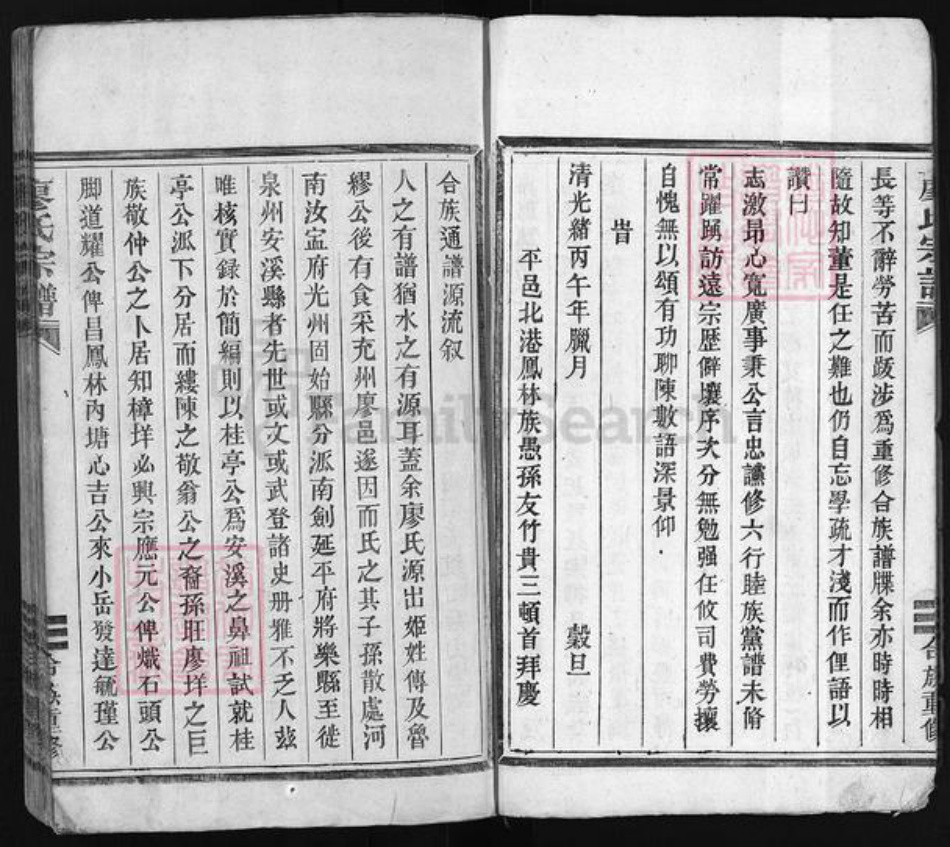 長等不辭勞苦而跋涉爲重修合族譜牒余亦時時相
隨故知董是任之難也仍自忘學疏才淺而作俚語以
讚曰
志激昂心寬廣事秉公言忠讜修六行睦族黨譜未脩
常躍踴訪遠宗歷僻壤序次分無勉强任攸司費勞攘
自愧無以頌有功聊陳數語深景仰
旹
清光緒丙午年臘月 榖旦
平邑北港鳳林族愚孫友竹貴三頓首拜慶
合族重修
合族通譜源流叙
人之有譜猶水之有源耳蓋余廖氏源出姬姓傳及曾
繆公後有食采充州廖邑遂因而氏之其子孫散處河
南汝寍府光州固始縣分派南劍延平府將樂縣至徙
泉州安溪縣者先世或文或武登諸史册雅不乏人玆
唯核實録於簡編則以桂亭公爲安溪之鼻祖試就桂
亭公派下分居而縷陳之敬翁公之裔孫旺廖垟之巨
族敬仲公之卜居知樟垟必興宗應元公俾熾石頭公
脚道耀公俾昌鳳林內塘心吉公來小岳發達毓瑾公
廖氏宗譜
合族重修
FamilySearch